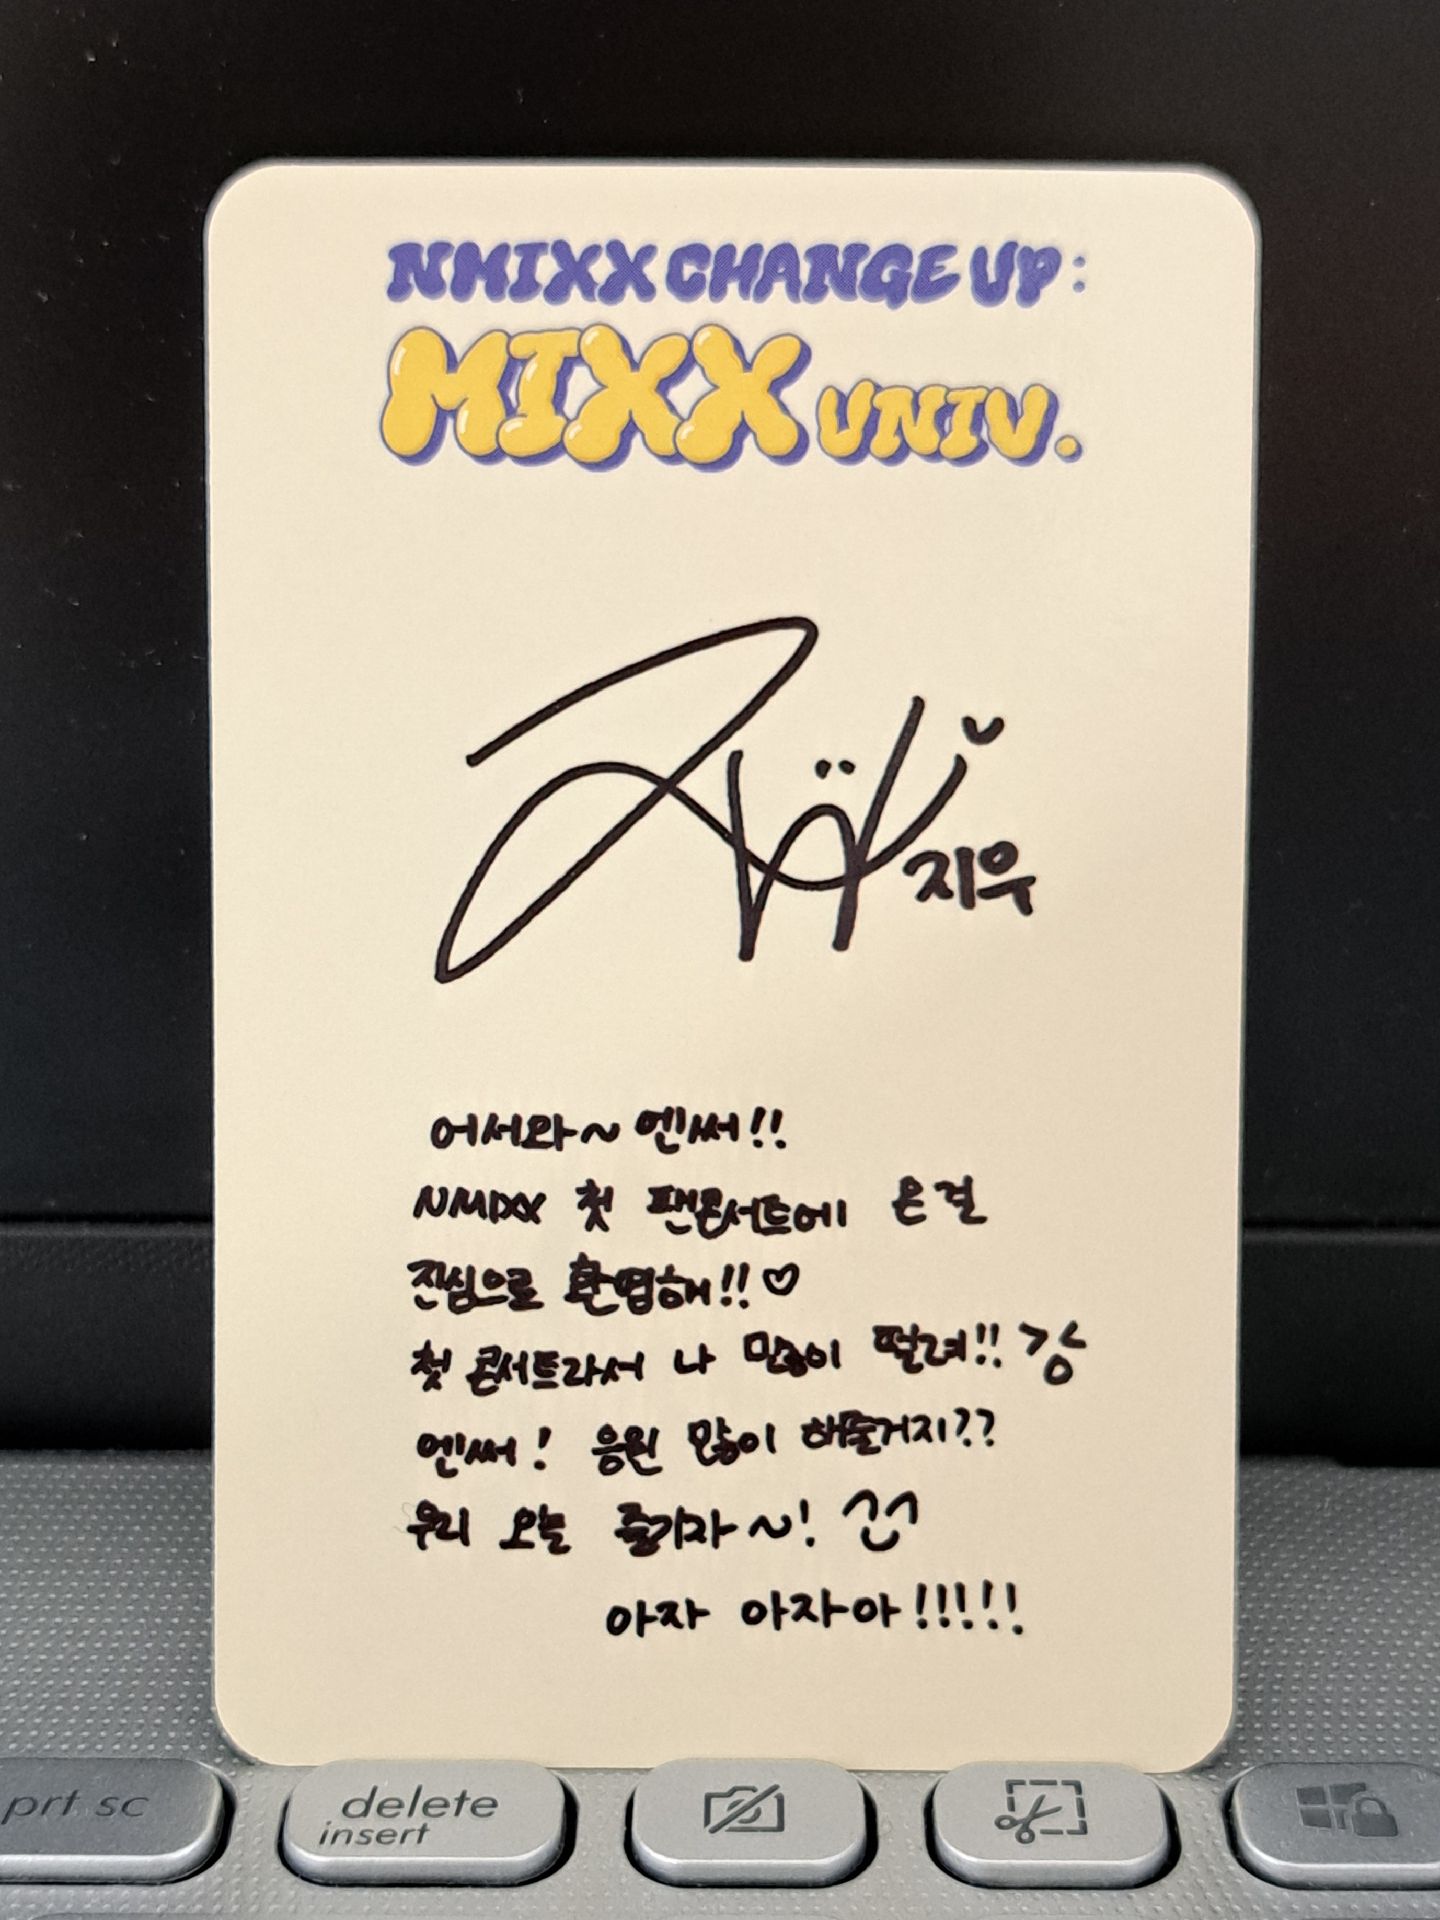 NMIXX CHANGE UP:
MIXX UNIV.
지우
어서와~ 엔써!!
NMIXX 첫 팬콘서트에 온걸
진심으로 환영해!!♡
첫 콘서트라서 나 많이 떨려!! 강
엔써! 응원 많이 해줄거지??
우리 오늘 즐기자~!
아자 아자아!!!!!
prt sc
delete
insert